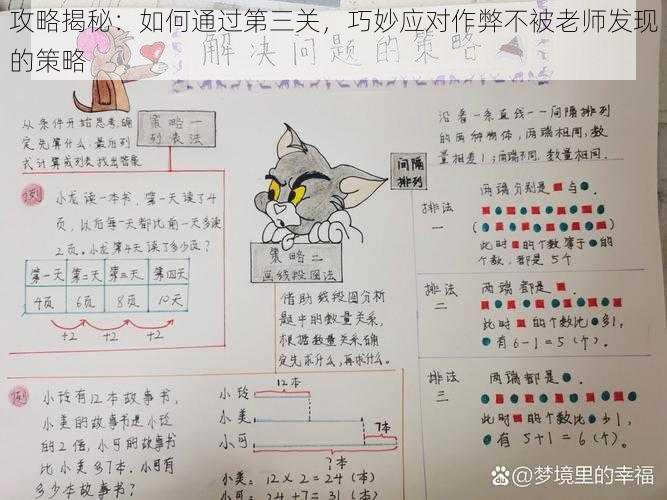 攻略揭秘：如何通过第三关，巧妙应对作弊不被老师发现
的策略
解决问题的策略
从条件开始思考,确
定先算什么,最后列
式计算或列表找出答案
策略一
列表法
例
小龙读一本书,第一天读了4
页,以后每一天都比前一天多读
2页。小龙第4天读了多少页?
第一天 第二天 第三天 第四天
4页 6页 8页 10天
+2 +2 +2
间隔
排列
策略二
画线段图法
借助线段图分析
题中的数量关系,
根据数量关系确
定先求什么,再求什么。
沿着一条直线一一间隔排列
的两种物体,两端相同,数
量相差1;两端不同,数量相同。
排法
一
两端分别是■与●。
此时■的个数等于●的
个数,都是5个
排法
二
两端都是■.
此时■的个数比●多1,
●有6-1=5(个)。
排法
三
两端都是●.
此时■的个数比●少1,
●有5+1=6(个)。
例
小玲有12本故事书,
小美的故事书是小玲
的2倍,小可的故事书
比小美多7本.小可有
多少本故事书?
12本
小玲
小美
7本
小可
?本
小美:12×2=24(本)
小可:24+7=31(本)
@梦境里的幸福